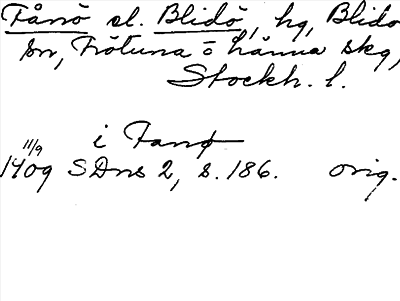 Fånö el. Blidö, hg, Blidö
sn, Frötuna o länna skg,
Stockh. l.
i Fanø
11/9
1409 SDns 2, s. 186. orig.